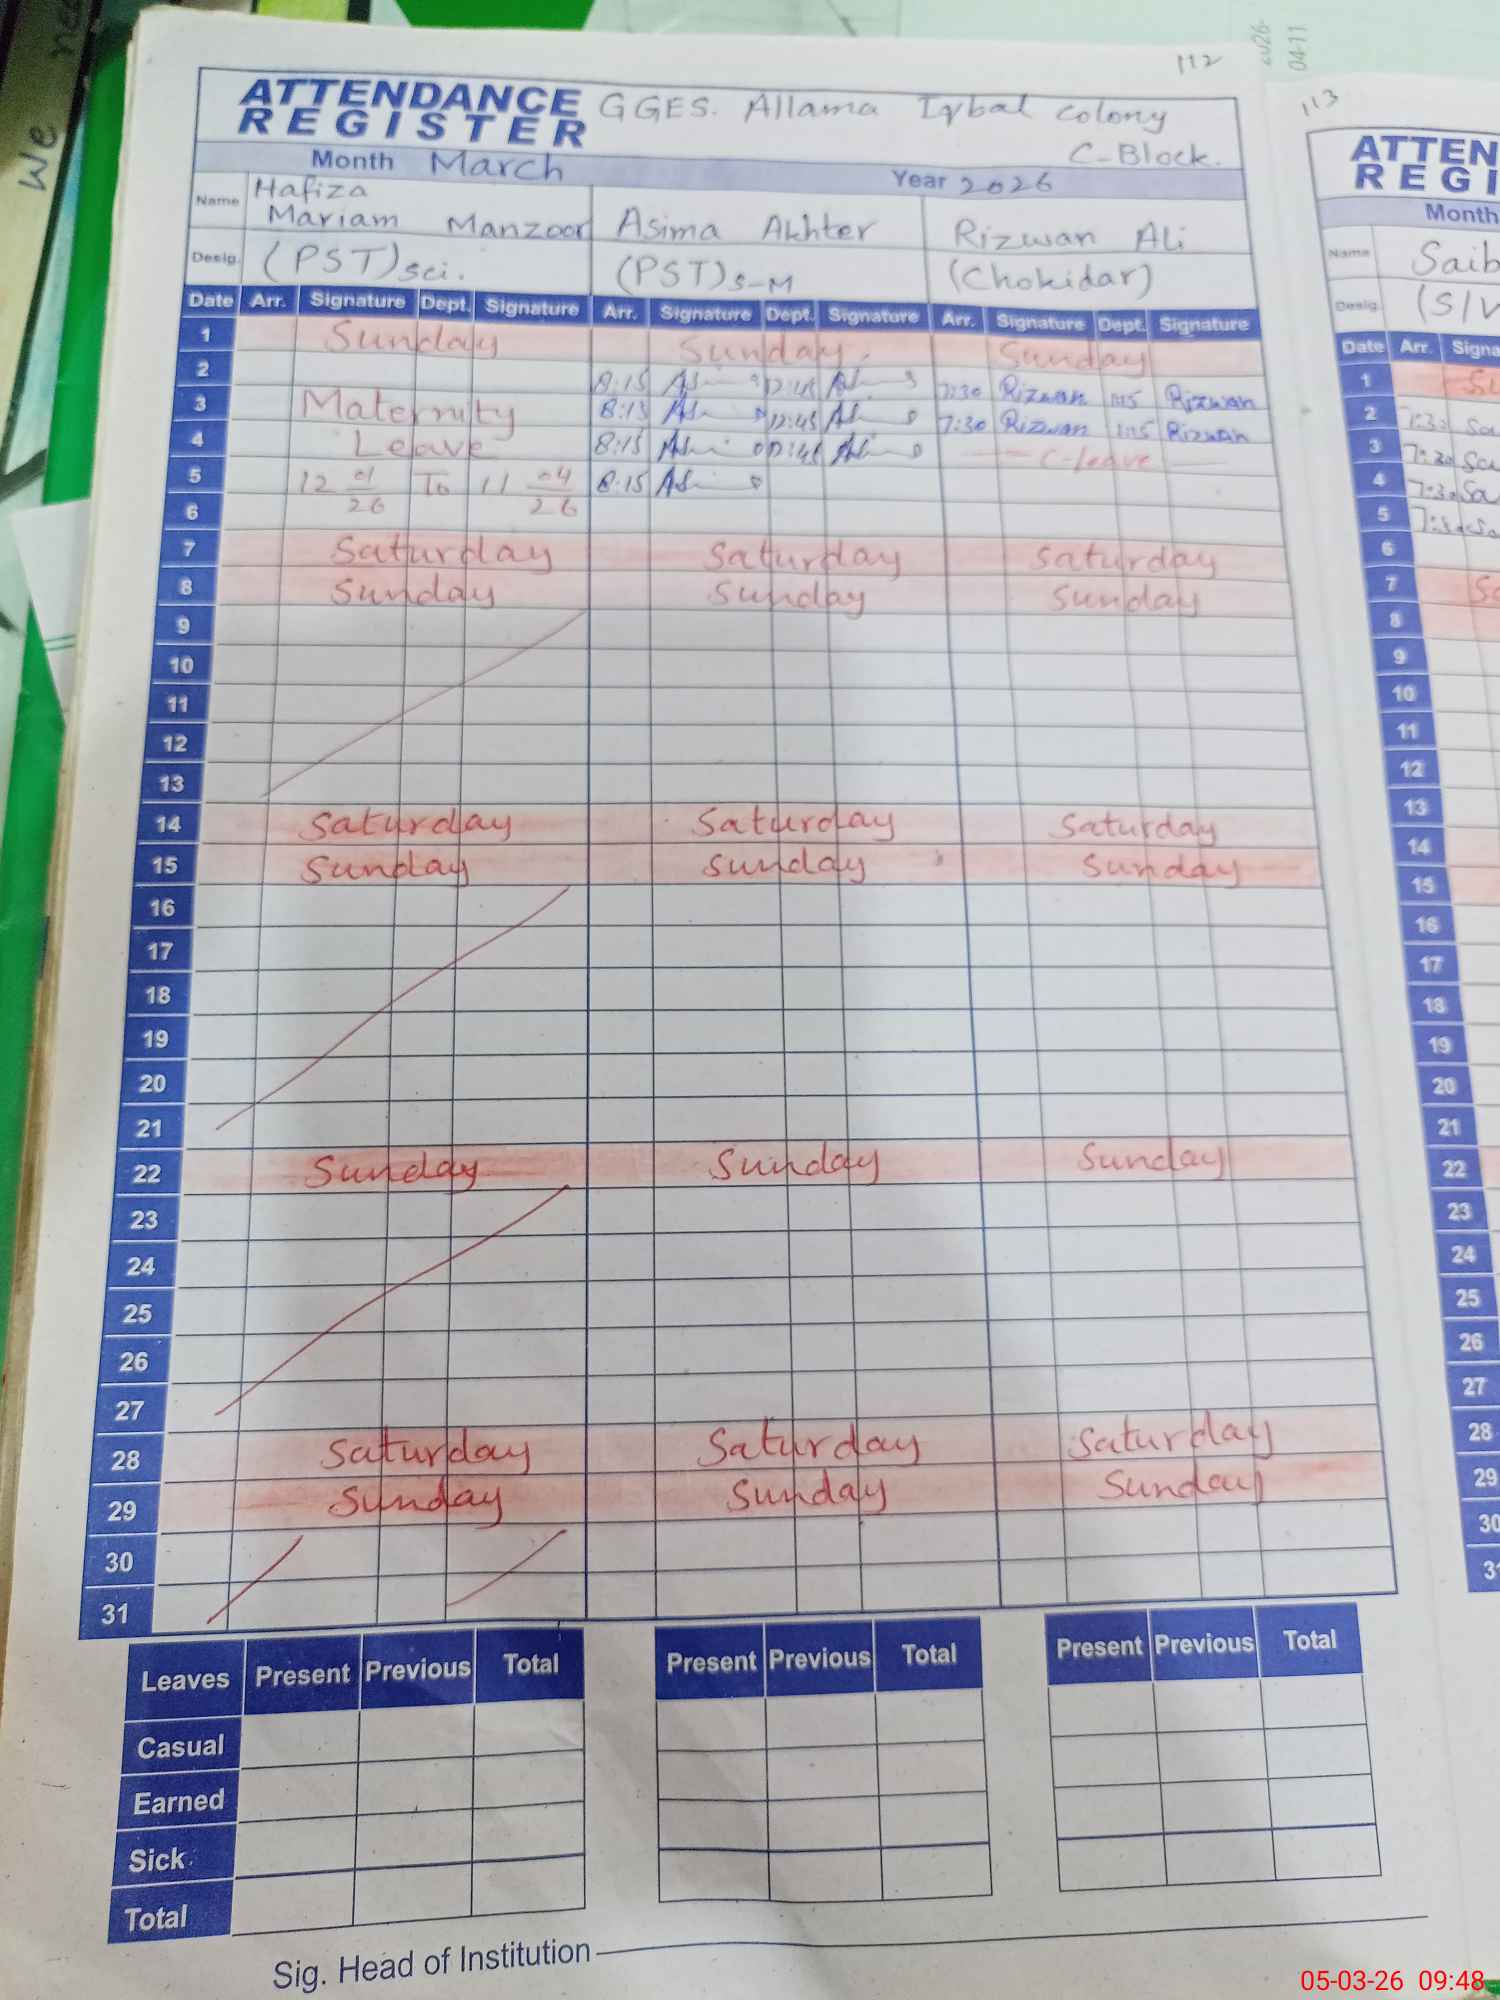 we
112
2026-
04-11
ATTENDANCE
REGISTER
GGES. Allama Iqbal colony
C-Block.
Month March Year 2026
Name Hafiza
Mariam Manzoor Asima Akhter Rizwan Ali
Desig. (PST)sci. (PST)S-M (Chokidar)
Date Arr. Signature Dept. Signature Arr. Signature Dept. Signature Arr. Signature Dept. Signature
1 Sunday Sunday. Sunday
2 8:15 12:45 7:30 Rizwan 1:15 Rizwan
3 Maternity 8:15 12:45 7:30 Rizwan 1:15 Rizwan
4 Leave 8:15 12:45 C-leave
5 12 01/26 To 11 04/26 8:15
6
7 Saturday Saturday Saturday
8 Sunday Sunday Sunday
9
10
11
12
13
14 Saturday Saturday Saturday
15 Sunday Sunday Sunday
16
17
18
19
20
21
22 Sunday Sunday Sunday
23
24
25
26
27
28 Saturday Saturday Saturday
29 Sunday Sunday Sunday
30
31
Leaves Present Previous Total Present Previous Total Present Previous Total
Casual
Earned
Sick
Total
Sig. Head of Institution
113
ATTEN
REGI
Month
Name Saib
Desig. (S/W
Date Arr. Signa
1 Su
2 7:30 Sa
3 7:30 Sa
4 7:30 Sa
5 7:30 Sa
6
7 Sa
8
9
10
11
12
13
14
15
16
17
18
19
20
21
22
23
24
25
26
27
28
29
30
31
05-03-26 09:48